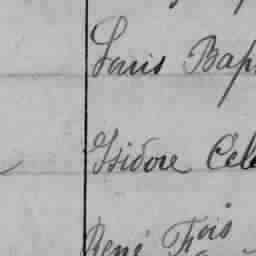 Louis Bap
Isidore Cele
René Frois